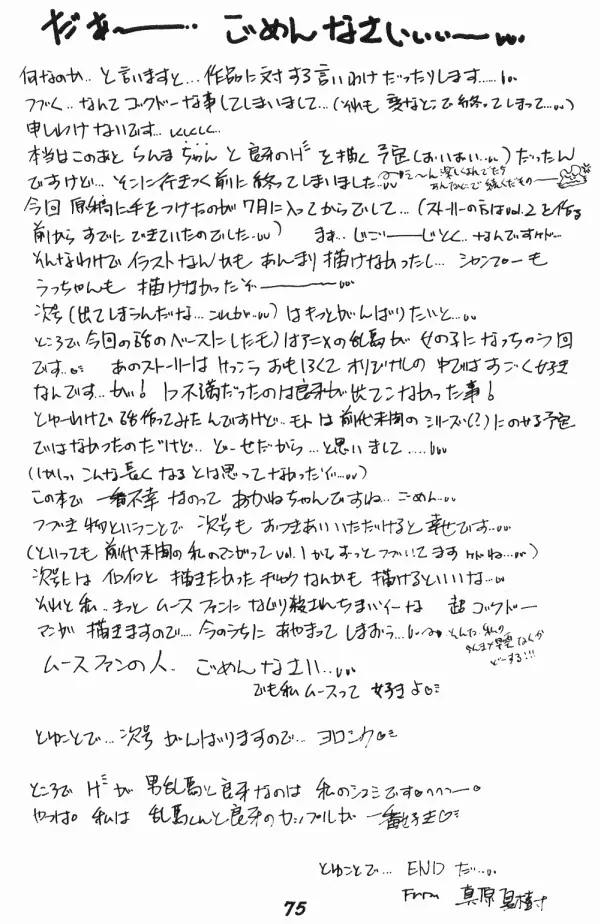 だぁ〜――‥ ごめんなさいぃぃぃ―ι…
何なのか‥と言いますと…作品に対する言いわけだったりします……
つづく‥なんてゴクドーな事してしまいまして…(それも変なとこで終ってしまって…)
申しわけないです…
本当はこのあと らんまちゃんと良牙のHを描く予定(おいおい…)だったん
ですけど…そこに行きつく前に終ってしまいました…
今回 原稿に手をつけたのが7月に入ってからでして…(ストーリーの方はvol.2を作る
前から すでにできていたのでした…) まぁ…じごー――じとく‥なんですけどー
そんなわけでイラストなんかも あんまり描けなかったし… シャンプーも
うっちゃんも 描けなかったぞ――
次号(出てしまうんだな…これが…)はもっとがんばりたいと…
ところで今回の話のベースにしたモノはアニメの乱馬が 女の子になっちゃう回
です… あのストーリーは けっこう おもしろくて オリジナルの 中ではすごく好き
なんです…が! 1つ不満だったのは良牙が出てこなかった事!
とゆーわけで 話作ってみたんですけど‥モトは 前代未聞の シリーズ(?)にのせる予定
ではなかったのだけど‥ど―せだから…と思いまして…..
(しかし こんな長くなるとは思ってなかったぞ…)
この本で 一番不幸なのって あかねちゃんですね‥ごめん…
つづき物ということで 次号も おつきあいいただけると 幸せです…
(といっても 前代未聞の 私のマンガって vol.1からずっと つづいてますけどね…)
次号には イロイロと 描きたかった ギャグなんかも 描けるといいな…
それと私‥きっと ムースファンに なじり殺されちまいそーな 超ゴクドー
マンガ 描きますので… 今のうちに あやまって しまおう…
ムースファンの人‥ ごめんなさい…
でも私 ムースって 好きよ♡
とゆことで… 次号 がんばりますので… ヨロシク♡
ところで Hが 男乱馬と良牙なのは 私のシュミです♡
やっぱ 私は 乱馬くんと良牙のカップルが 一番好き♡
とゆことで… END だ……
From 真原 夏樹
75